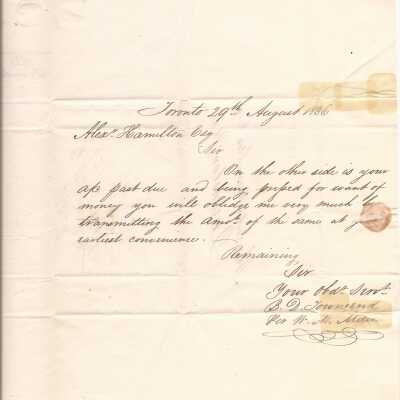 Toronto 29th August 1836
Alexr. Hamilton Esq
Sir
On the other side is your
a/c past due and being pressed for want of
money you will obledge me very much by
transmitting the amot. of the same at your
earliest convenience.
Remaining
Sir
Your Obdt. Servt.
B. D. Townsend
Per W. M.